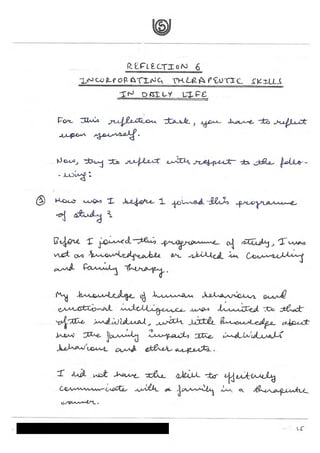 5
REFLECTION 6
INCORPORATING THERAPEUTIC SKILLS
IN DAILY LIFE
For this reflection task, you have to reflect
upon yourself.
Now, try to reflect with respect to the follo-
-wing:
How was I before I joined this programme
of study?
Before I joined this programme of study, I was
not as knowledgeable or skilled in Counselling
and Family Therapy.
My knowledge of human behaviour and
emotional intelligence was limited to that
of the individual, with little knowledge about
how the family impacts the individual's
behaviour and other aspects.
I did not have the skill to effectively
communicate with a family in a therapeutic
manner.